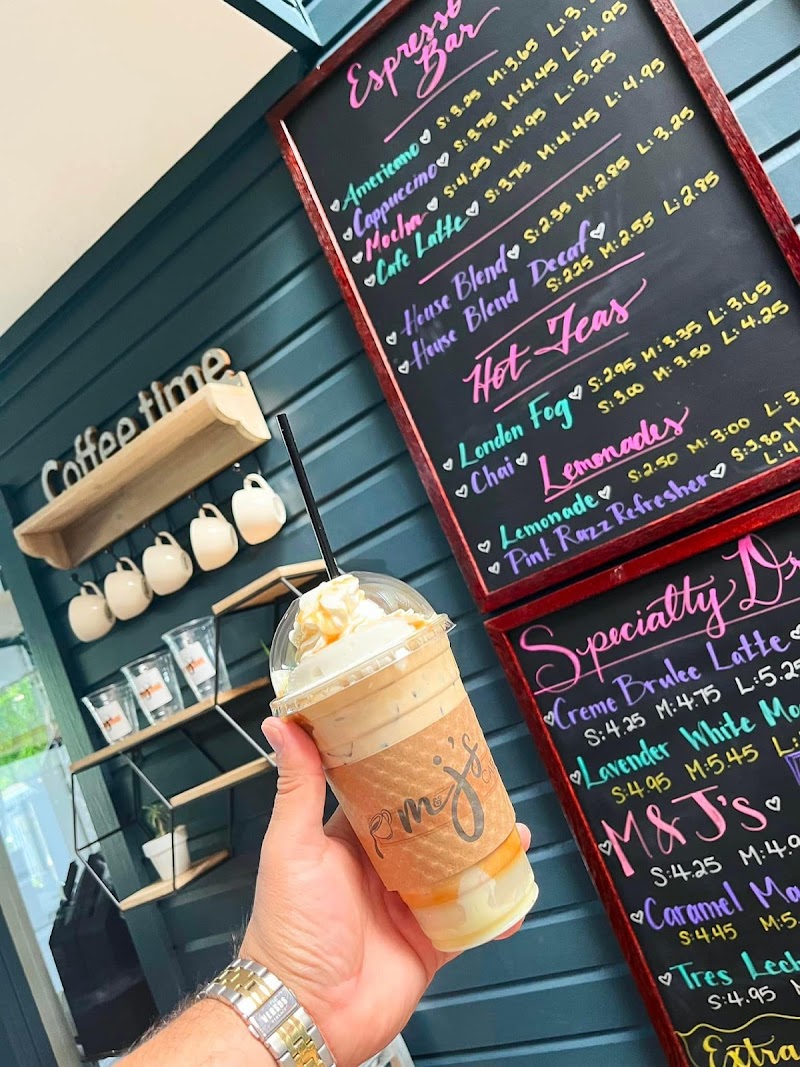 Espresso
Bar
Americano S:3.25 M:3.65
Cappuccino S:3.75 M:4.45 L:4.95
Mocha S:4.25 M:4.95 L:5.25
Cafe Latte S:3.75 M:4.45 L:4.95
House Blend S:2.35 M:2.85 L:3.25
House Blend Decaf
S:2.25 M:2.55 L:2.85
Hot Teas
London Fog S:2.95 M:3.35 L:3.65
Chai S:3.00 M:3.50 L:4.25
Lemonades
Lemonade S:2.50 M:3.00
Pink Razz Refresher S:3.80
Coffee time
m&j's
Specialty
Creme Brulee Latte
S:4.25 M:4.75 L:5.25
Lavender White
S:4.95 M:5.45
M&J's
S:4.25
Caramel
S:4.45
Tres
S:4.95
Extra